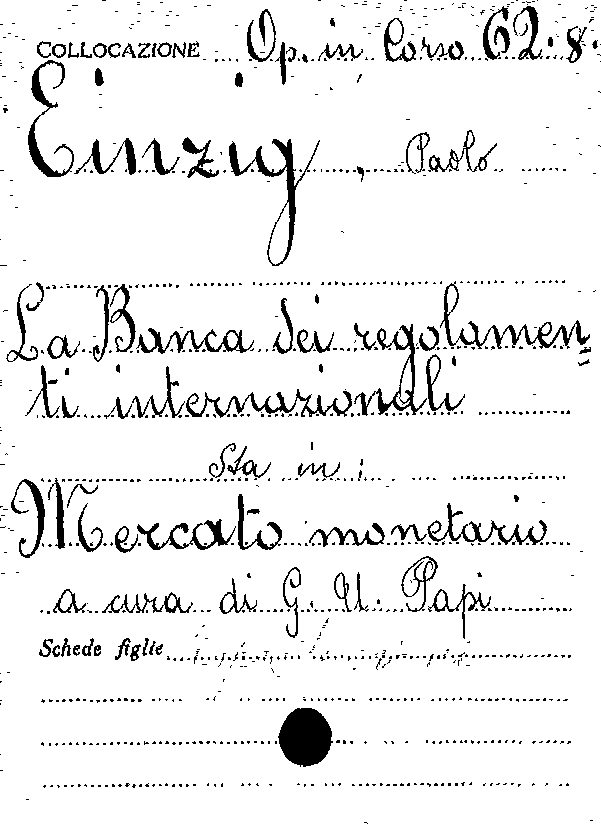 COLLOCAZIONE Op. in Corso 62.8.
Einzig, Paolo
La Banca dei regolamen=
ti internazionali
Sta in:
Mercato monetario
a cura di G. U. Papi
Schede figlie